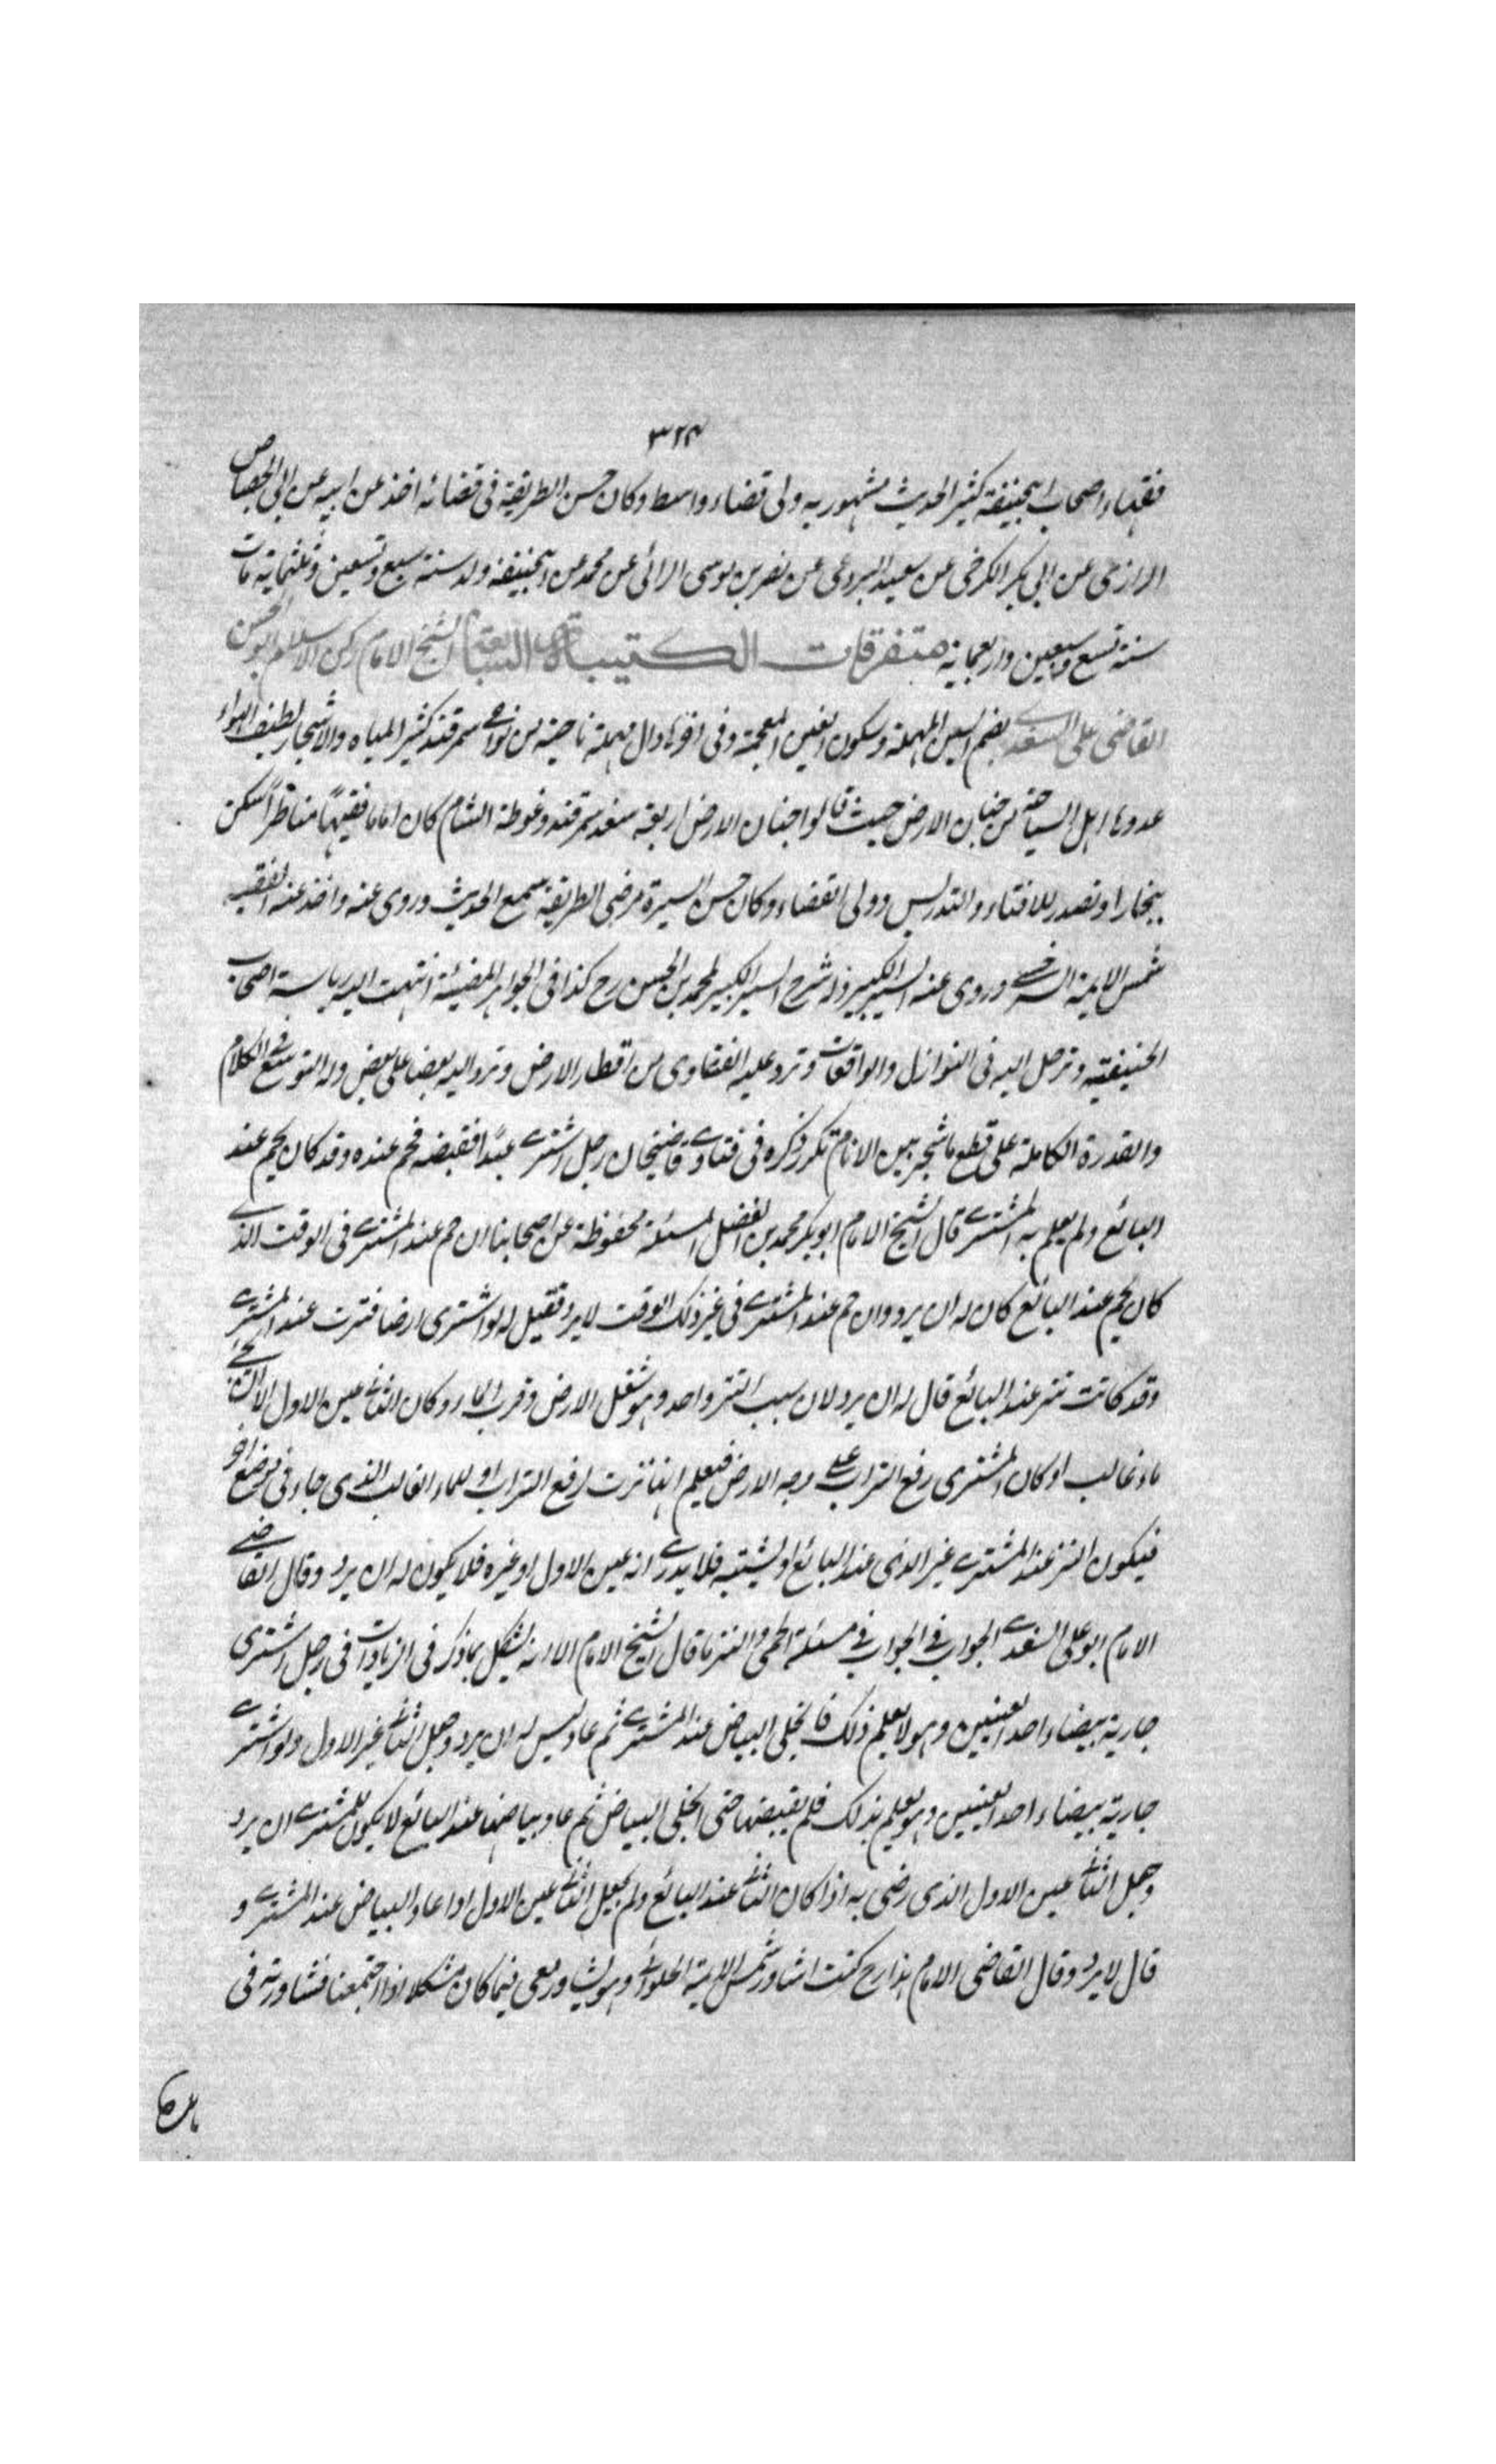 ٣٢٤
فقهاء اصحاب ابيحنيفة كثير الحديث مشهور به ولى قضاء واسط وكان حسن الطريقة فى قضائه اخذ عن ابيه عن ابى الجصاص
الرازى عن ابى بكر الكرخى عن سعيد البردعى عن نصر بن موسى الرائى عن محمد عن ابيحنيفة ولد سنة سبع وتسعين وثلثماية مات
سنة تسع وسبعين واربعماية متفرقات الكتيبة السابعة الشيخ الامام ركن الاسلام ابو الحسن
القاضى على السغدى بضم السين المهملة وسكون الغين المعجمة وفى اخرها دال مهملة ناحية من نواحى سمرقند كثير المياه والاشجار لطيف الهواء
عدوها اهل السياحة من جنان الارض حيث قالوا جنان الارض اربعة سغد سمرقند وغوطة الشام كان اماما فقيها مناظرا سكن
ببخارا وتصدر للافتاء والتدريس وولى القضاء وكان حسن السيرة مرضى الطريقة سمع الحديث وروى عنه واخذ عنه الفقيه
شمس الايمة السرخسى وروى عنه السير الكبير وله شرح السير الكبير لمحمد بن الحسن رح كذا فى الجواهر المضيئة انتهت اليه رياسة اصحاب
الحنيفية وترحل اليه فى النوازل والواقعات وترد عليه الفتاوى من اقطار الارض وترد اليه بعضا على بعض وله التوسع فى الكلام
والقدرة الكاملة على قطع ما شجر بين الانام تكرر ذكره فى فتاوى قاضيخان رجل اشترى عبدا فقبضه فحم عنده وقد كان يحم عند
البائع ولم يعلم به المشترى قال الشيخ الامام ابو بكر محمد بن الفضل المسئلة محفوظة عن اصحابنا ان حم عند المشترى فى الوقت الذى
كان يحم عند البائع كان له ان يرد وان حم عند المشترى فى غير ذلك الوقت لا يرد فقيل له لو اشترى ارضا فنزت عند المشترى
وقد كانت تنز عند البائع قال له ان يرد لان سبب النز واحد وهو تسفل الارض وقرب الماء وكان الثانى عين الاول الا ان يجئ
ماء غالب او كان المشترى رفع التراب على وجه الارض فيعلم انها نزت لرفع التراب او للماء الغالب الذى جاء فى موضع اخر
فيكون النز عند المشترى غير الذى عند البائع او يشتبه فلا يدرى انه عين الاول او غيره فلا يكون له ان يرد وقال القاضى
الامام ابو على السغدى الجواب فى الجواب فى مسئلة الحمى والنز ما قال الشيخ الامام الا انه يشكل بما ذكر فى الزيادات فى رجل اشترى
جارية بيضاء احد العينين وهو لا يعلم ذلك فانجلى البياض عند المشترى ثم عاد ليس له ان يرد وجعل الثانى غير الاول ولو اشترى
جارية بيضاء احد العينين وهو يعلم بذلك فلم يقبضها حتى انجلى البياض ثم عاد بياضها عند البائع لا يكون للمشترى ان يرد
وجعل الثانى عين الاول الذى رضى به اذا كان الثانى عند البائع ولم يجعل الثانى عين الاول اذا عاد البياض عند المشترى و
قال لا يرد وقال القاضى الامام هذا رح كنت اشاور شمس الايمة الحلوانى وهو يشاور معى فيما كان مشكلا اذا اجتمعنا فشاورته فى